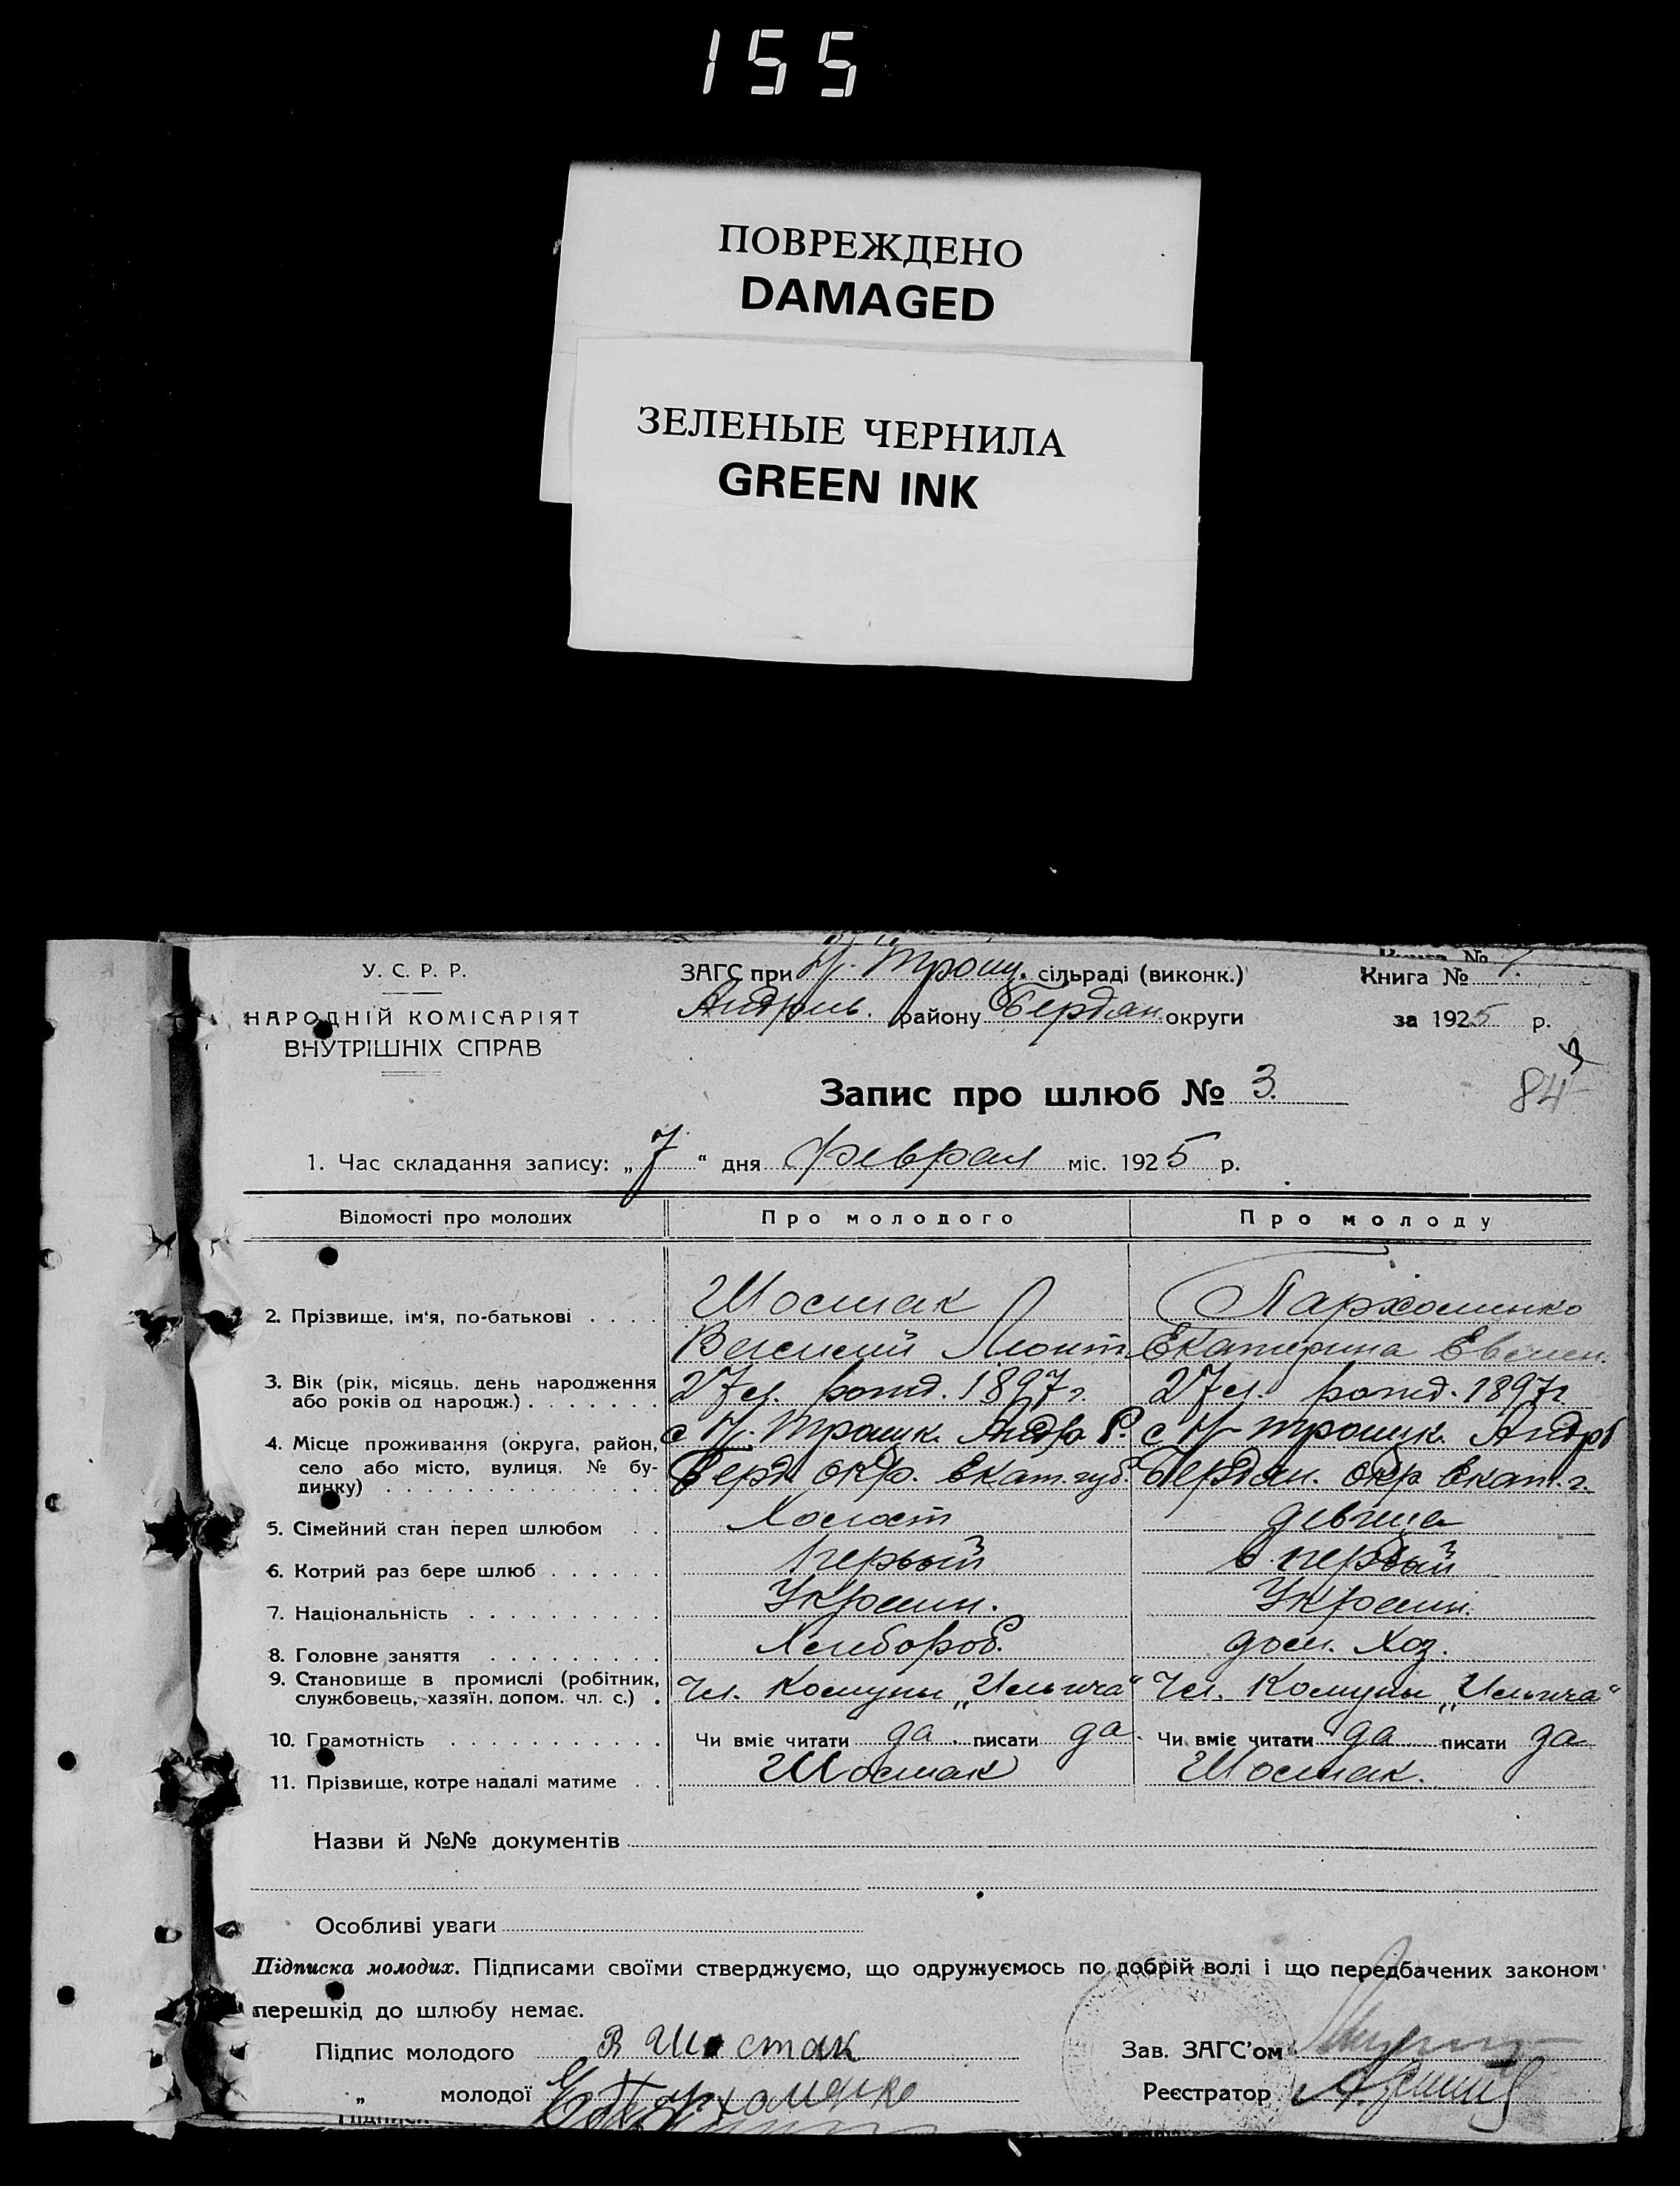 155
ПОВРЕЖДЕНО
DAMAGED
ЗЕЛЕНЫЕ ЧЕРНИЛА
GREEN INK
У. С. Р. Р.
НАРОДНІЙ КОМІСАРІЯТ
ВНУТРІШНІХ СПРАВ
ЗАГС при Н. Троиц. сільраді (виконк.)
Книга №
району Бердян. округи
за 1925 р.
Запис про шлюб № 3.
84
1. Час складання запису: „7" дня февраля міс. 1925 р.
Відомості про молодих
Про молодого
Про молоду
2. Прізвище, ім'я, по-батькові . . . .
Шостак
Василий Леонт.
Пархоменко
Екатерина Евсеев.
3. Вік (рік, місяць, день народження
або років од народж.) . . . . . . .
27 л. рожд. 1897 г.
27 л. рожд. 1897 г.
4. Місце проживання (округа, район,
село або місто, вулиця, № бу-
динку) . . . . . . . . . . . . . .
с Н. Троицк. Андр. Р.
Берд. окр. Екат. губ.
с Н Троицк. Андр
Бердян. окр Екат. г.
5. Сімейний стан перед шлюбом . .
Холост
девица
6. Котрий раз бере шлюб . . . . . .
первый
в первый
7. Національність . . . . . . . . . .
Украин.
Украин.
8. Головне заняття . . . . . . . . .
Хлебороб.
дом. Хоз.
9. Становище в промислі (робітник,
службовець, хазяїн, допом. чл. с.) .
Чл. Комуны „Ильича"
Чл. Комуны „Ильича"
10. Грамотність . . . . . . . . . . .
Чи вміє читати да . писати да.
Чи вміє читати да писати да
11. Прізвище, котре надалі матиме . .
Шостак
Шостак.
Назви й №№ документів
Особливі уваги
Підписка молодих. Підписами своїми стверджуємо, що одружуємось по добрій волі і що передбачених законом
перешкід до шлюбу немає.
Підпис молодого В Шостак
Зав. ЗАГС'ом
„ молодої Е Пархоменко
Реєстратор